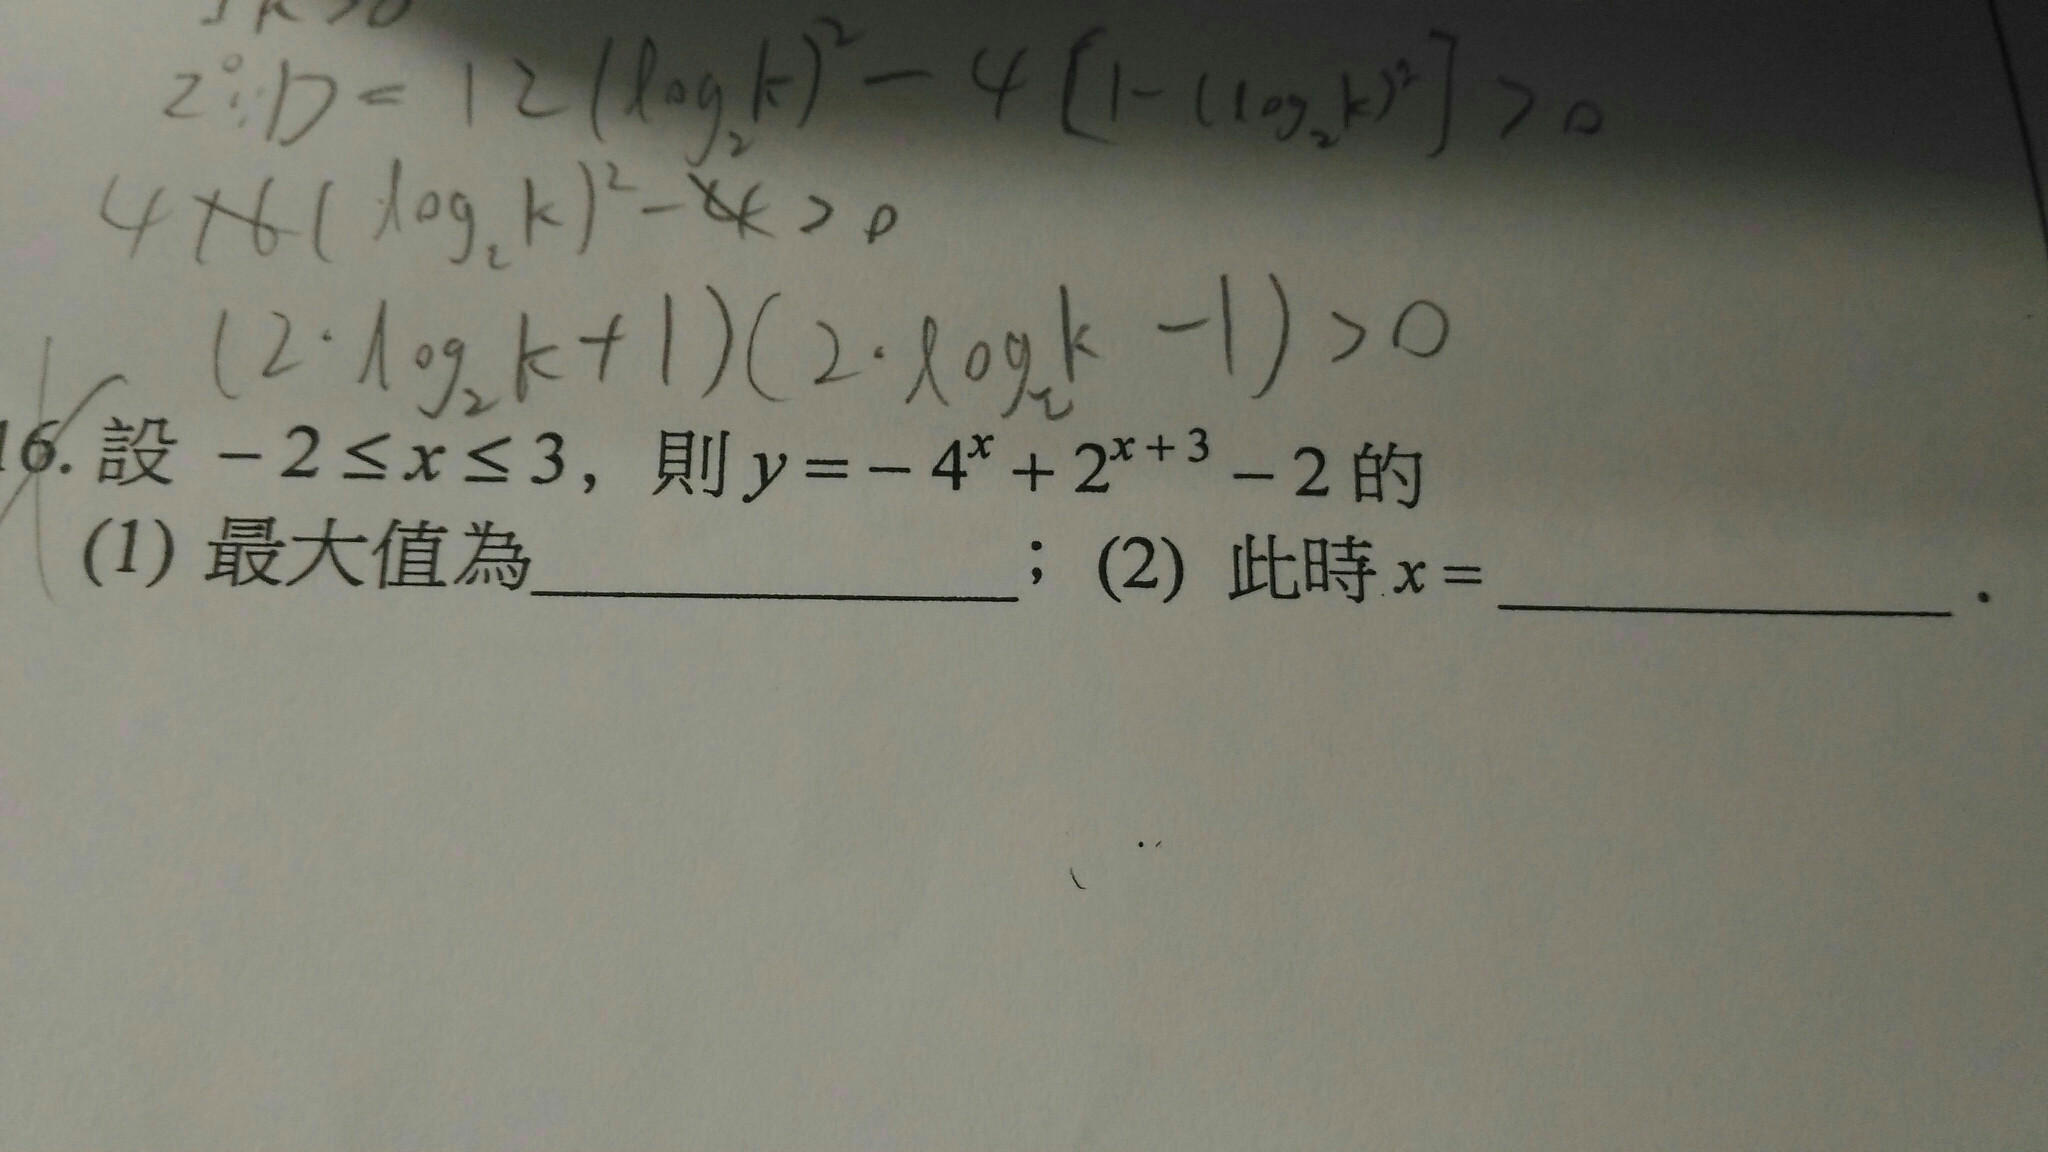 k > 0
2°: D = 12(log₂k)² − 4[1 − (log₂k)²] > 0
(log₂k)² − > 0
(2·log₂k + 1)(2·log₂k − 1) > 0
16. 設 −2 ≤ x ≤ 3, 則 y = −4ˣ + 2ˣ⁺³ − 2 的
(1) 最大值為__________; (2) 此時 x = __________.